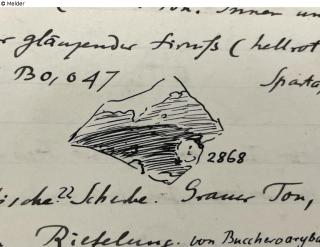 © Melder
Ton. Innen un
r glänzender Firnß (hellrot
BO,047
Sparta
2868
ische 22 Scherbe. Grauer Ton,
Riefelung. von Buccheroaryb